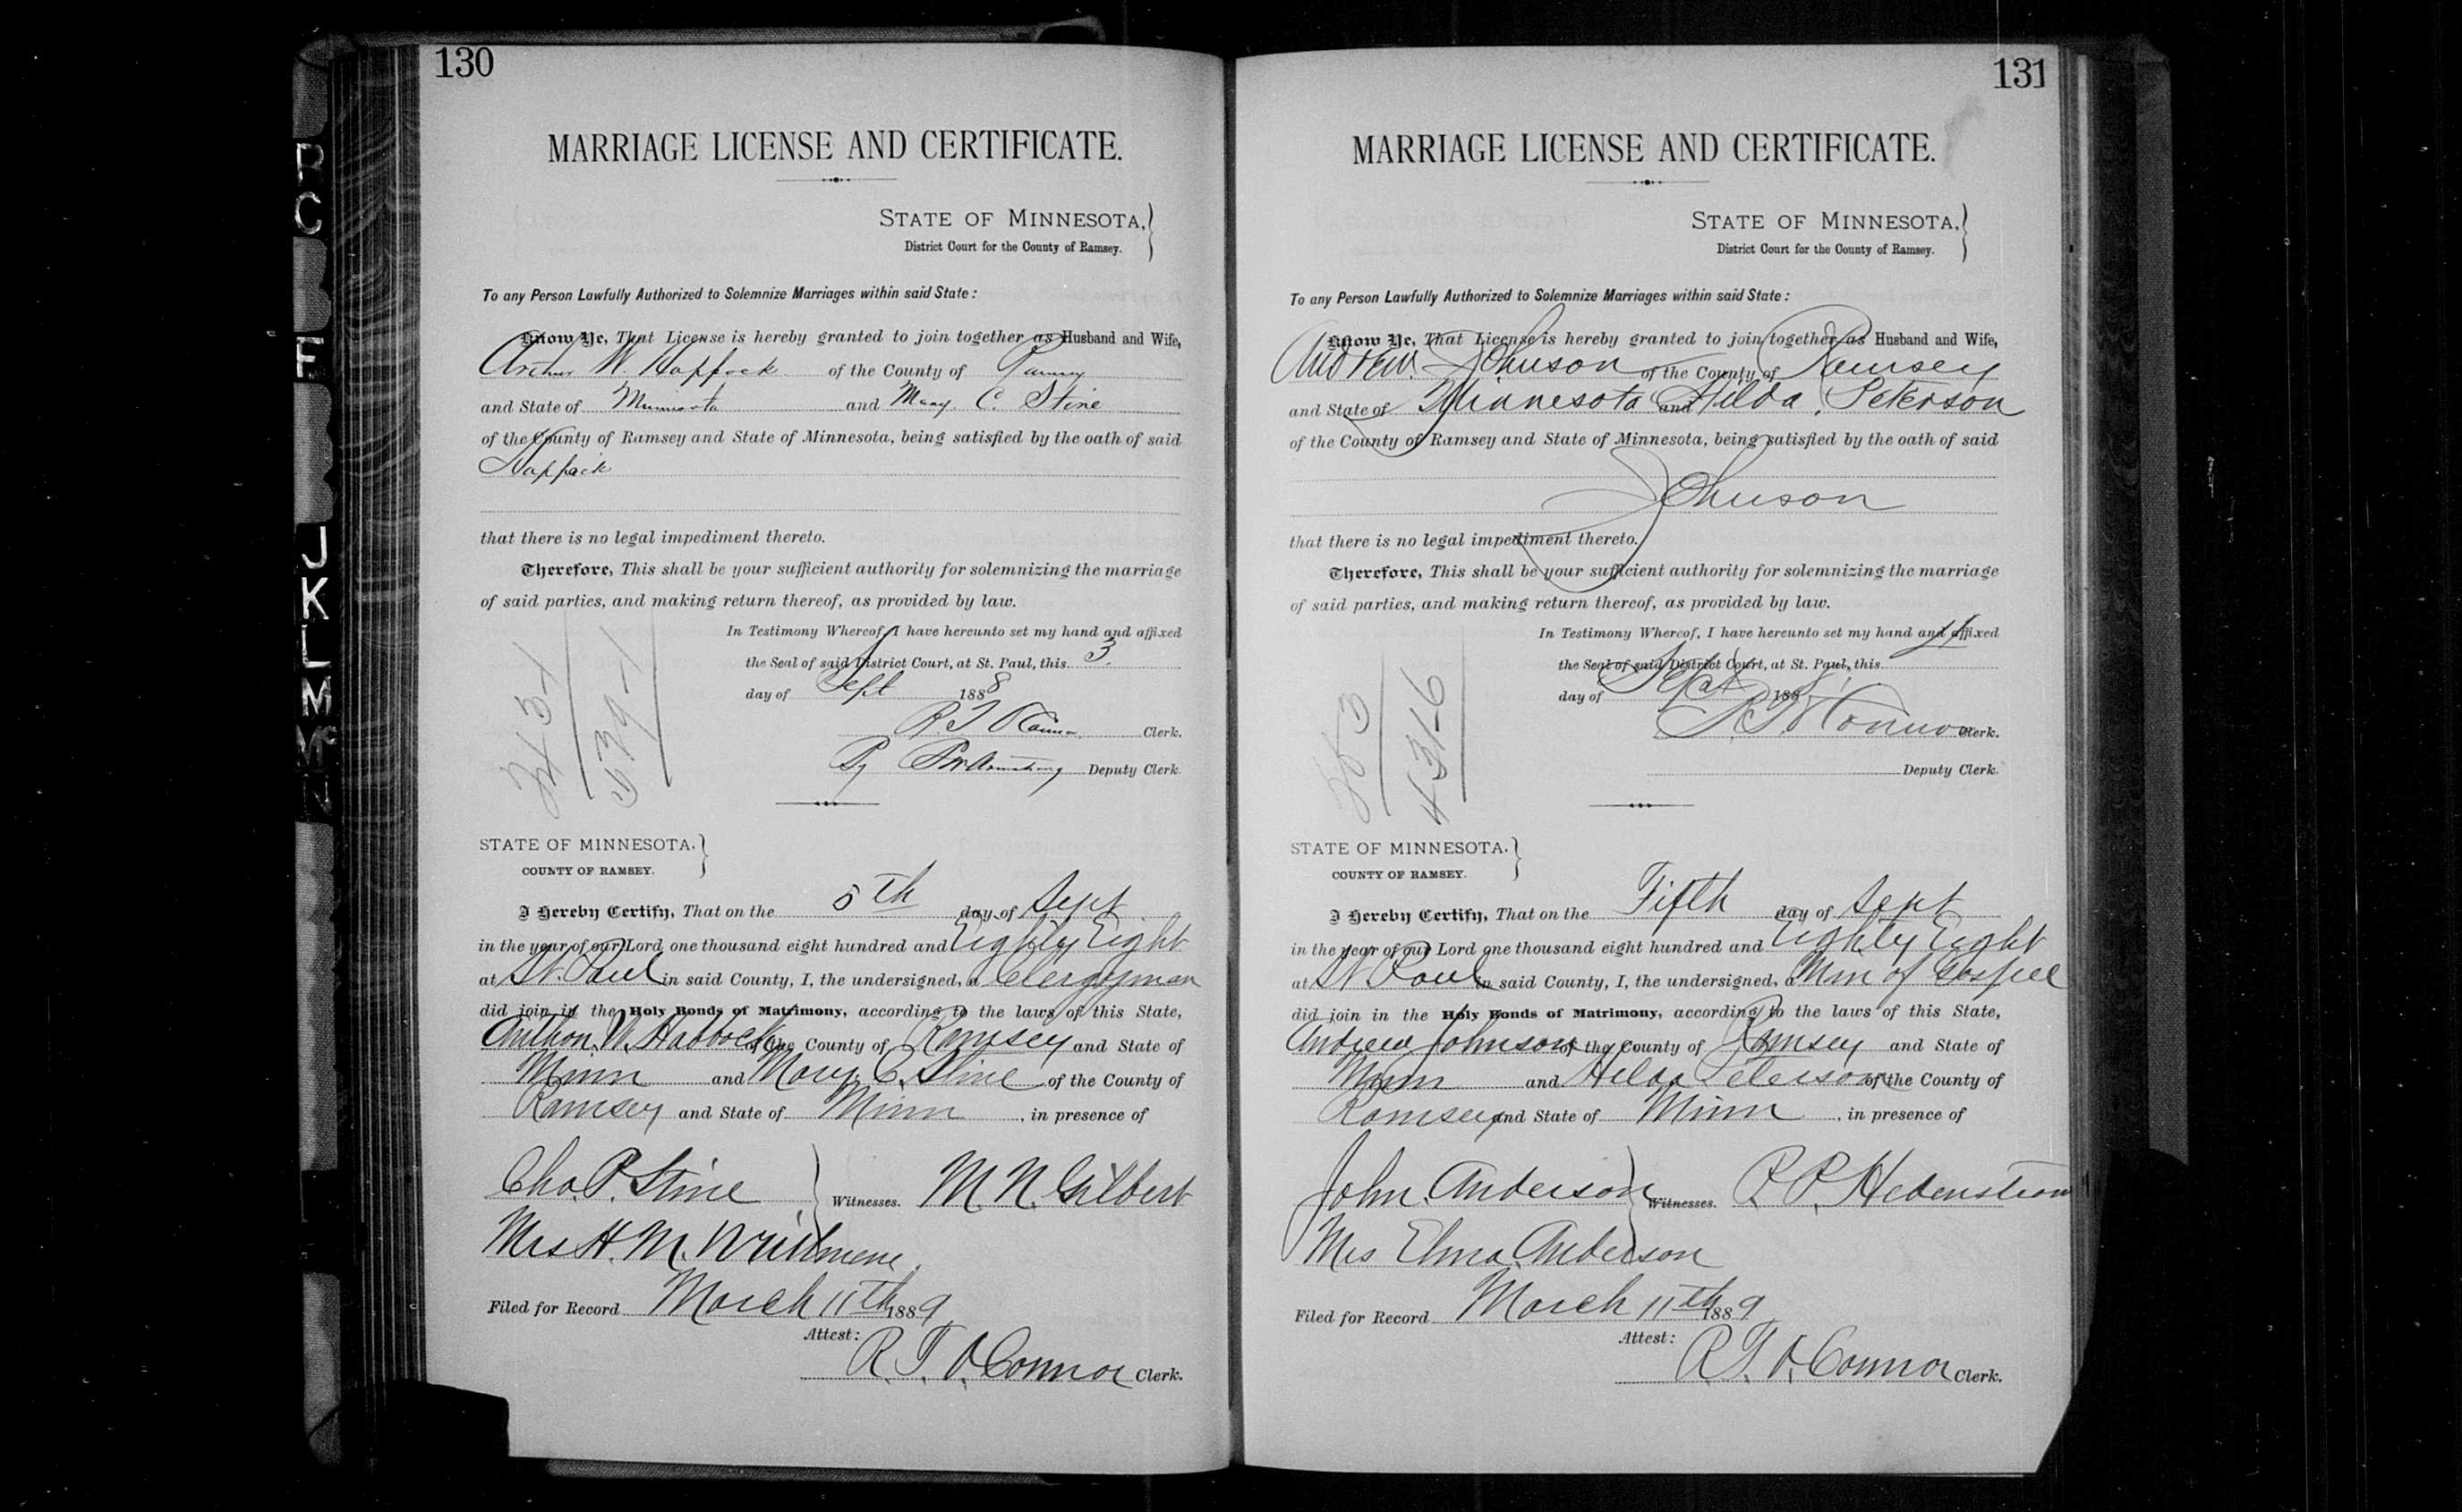 130
MARRIAGE LICENSE AND CERTIFICATE.
STATE OF MINNESOTA,
District Court for the County of Ramsey.
To any Person Lawfully Authorized to Solemnize Marriages within said State:
Know Ye, That License is hereby granted to join together as Husband and Wife,
Arthur W. Happock of the County of Ramsey
and State of Minnesota and Mary C. Stine
of the County of Ramsey and State of Minnesota, being satisfied by the oath of said
Happock
that there is no legal impediment thereto.
Therefore, This shall be your sufficient authority for solemnizing the marriage
of said parties, and making return thereof, as provided by law.
In Testimony Whereof, I have hereunto set my hand and affixed
the Seal of said District Court, at St. Paul, this 3.
day of Sept 1888
R. T. O'Connor Clerk.
By Deputy Clerk.
STATE OF MINNESOTA.
COUNTY OF RAMSEY.
I Hereby Certify, That on the 5th day of Sept
in the year of our Lord one thousand eight hundred and Eighty Eight
at St. Paul in said County, I, the undersigned, a Clergyman
did join in the Holy Bonds of Matrimony, according to the laws of this State,
W. Habbock of the County of Ramsey and State of
Minn and Mary C. Stine of the County of
Ramsey and State of Minn, in presence of
Cho. P. Stine Witnesses. M. N. Gilbert
Mrs H. M.
Filed for Record March 11th 1889
Attest:
R. T. O'Connor Clerk.
131
MARRIAGE LICENSE AND CERTIFICATE.
STATE OF MINNESOTA,
District Court for the County of Ramsey.
To any Person Lawfully Authorized to Solemnize Marriages within said State:
Know Ye, That License is hereby granted to join together as Husband and Wife,
Andrew Johnson of the County of Ramsey
and State of Minnesota and Hilda Peterson
of the County of Ramsey and State of Minnesota, being satisfied by the oath of said
Johnson
that there is no legal impediment thereto.
Therefore, This shall be your sufficient authority for solemnizing the marriage
of said parties, and making return thereof, as provided by law.
In Testimony Whereof, I have hereunto set my hand and affixed
the Seal of said District Court, at St. Paul, this 4
day of Sept 1888
R. T. O'Connor Clerk.
Deputy Clerk.
STATE OF MINNESOTA.
COUNTY OF RAMSEY.
I Hereby Certify, That on the Fifth day of Sept
in the year of our Lord one thousand eight hundred and Eighty Eight
at St Paul in said County, I, the undersigned, a Min of Gospel
did join in the Holy Bonds of Matrimony, according to the laws of this State,
Andrew Johnson of the County of Ramsey and State of
Minn and Hilda Peterson of the County of
Ramsey and State of Minn, in presence of
John Anderson Witnesses. P. P. Hedenstrom
Mrs Elma Anderson
Filed for Record March 11th 1889
Attest:
R. T. O'Connor Clerk.
J
K
L
M
Mc
N